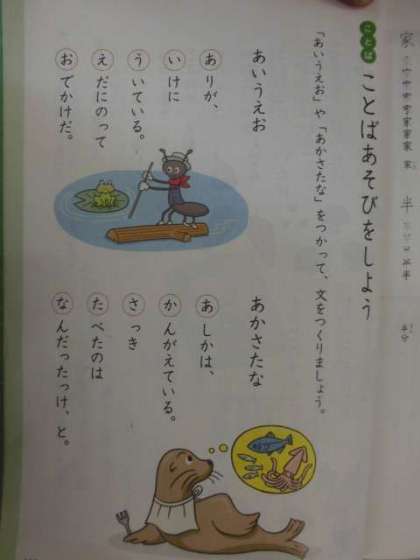 家
家
半
半半
半分
ことば
ことばあそびをしよう
「あいうえお」や「あかさたな」をつかって、文をつくりましょう。
あいうえお
ありが、
いけに
ういている。
えだにのって
おでかけだ。
あかさたな
あしかは、
かんがえている。
さっき
たべたのは
なんだったっけ、と。